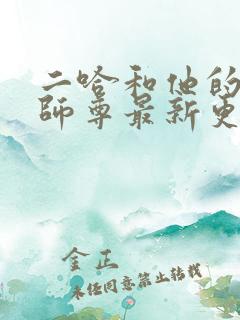 二哈和他的
師尊最新更
金正
未经同意禁止转载